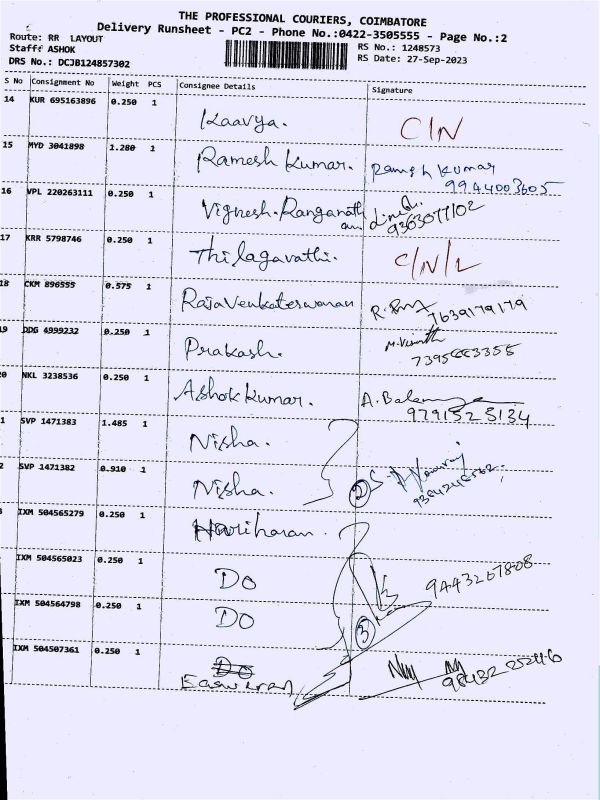 THE PROFESSIONAL COURIERS, COIMBATORE
Delivery Runsheet - PC2 - Phone No.:0422-3505555 - Page No.:2
Route: RR LAYOUT
RS No.: 1248573
Stafff ASHOK
RS Date: 27-Sep-2023
DRS No.: DCJB124857302
S No Consignment No Weight PCS Consignee Details Signature
14 KUR 695163896 0.250 1 Kaavya. C/N
15 MYD 3041898 1.280 1 Ramesh Kumar. Ramesh Kumar
9944003605
16 VPL 220263111 0.250 1 Vignesh.Ranganath
an dinesh.
9363077102
17 KRR 5798746 0.250 1 Thilagavathi. C/N/L
18 CKM 896555 0.575 1 RajaVenkateswaran R.
7639179179
19 DDG 4999232 0.250 1 Prakash.
20 NKL 3238536 0.250 1 Ashok Kumar.
1 SVP 1471383 1.485 1 Nisha.
2 SVP 1471382 0.910 1 Nisha. 2
IXM 504565279 0.250 1 Hariharan.
IXM 504565023 0.250 1 Do 9443267808
IXM 504564798 0.250 1 Do 3
IXM 504507361 0.250 1 Do
Easwaran